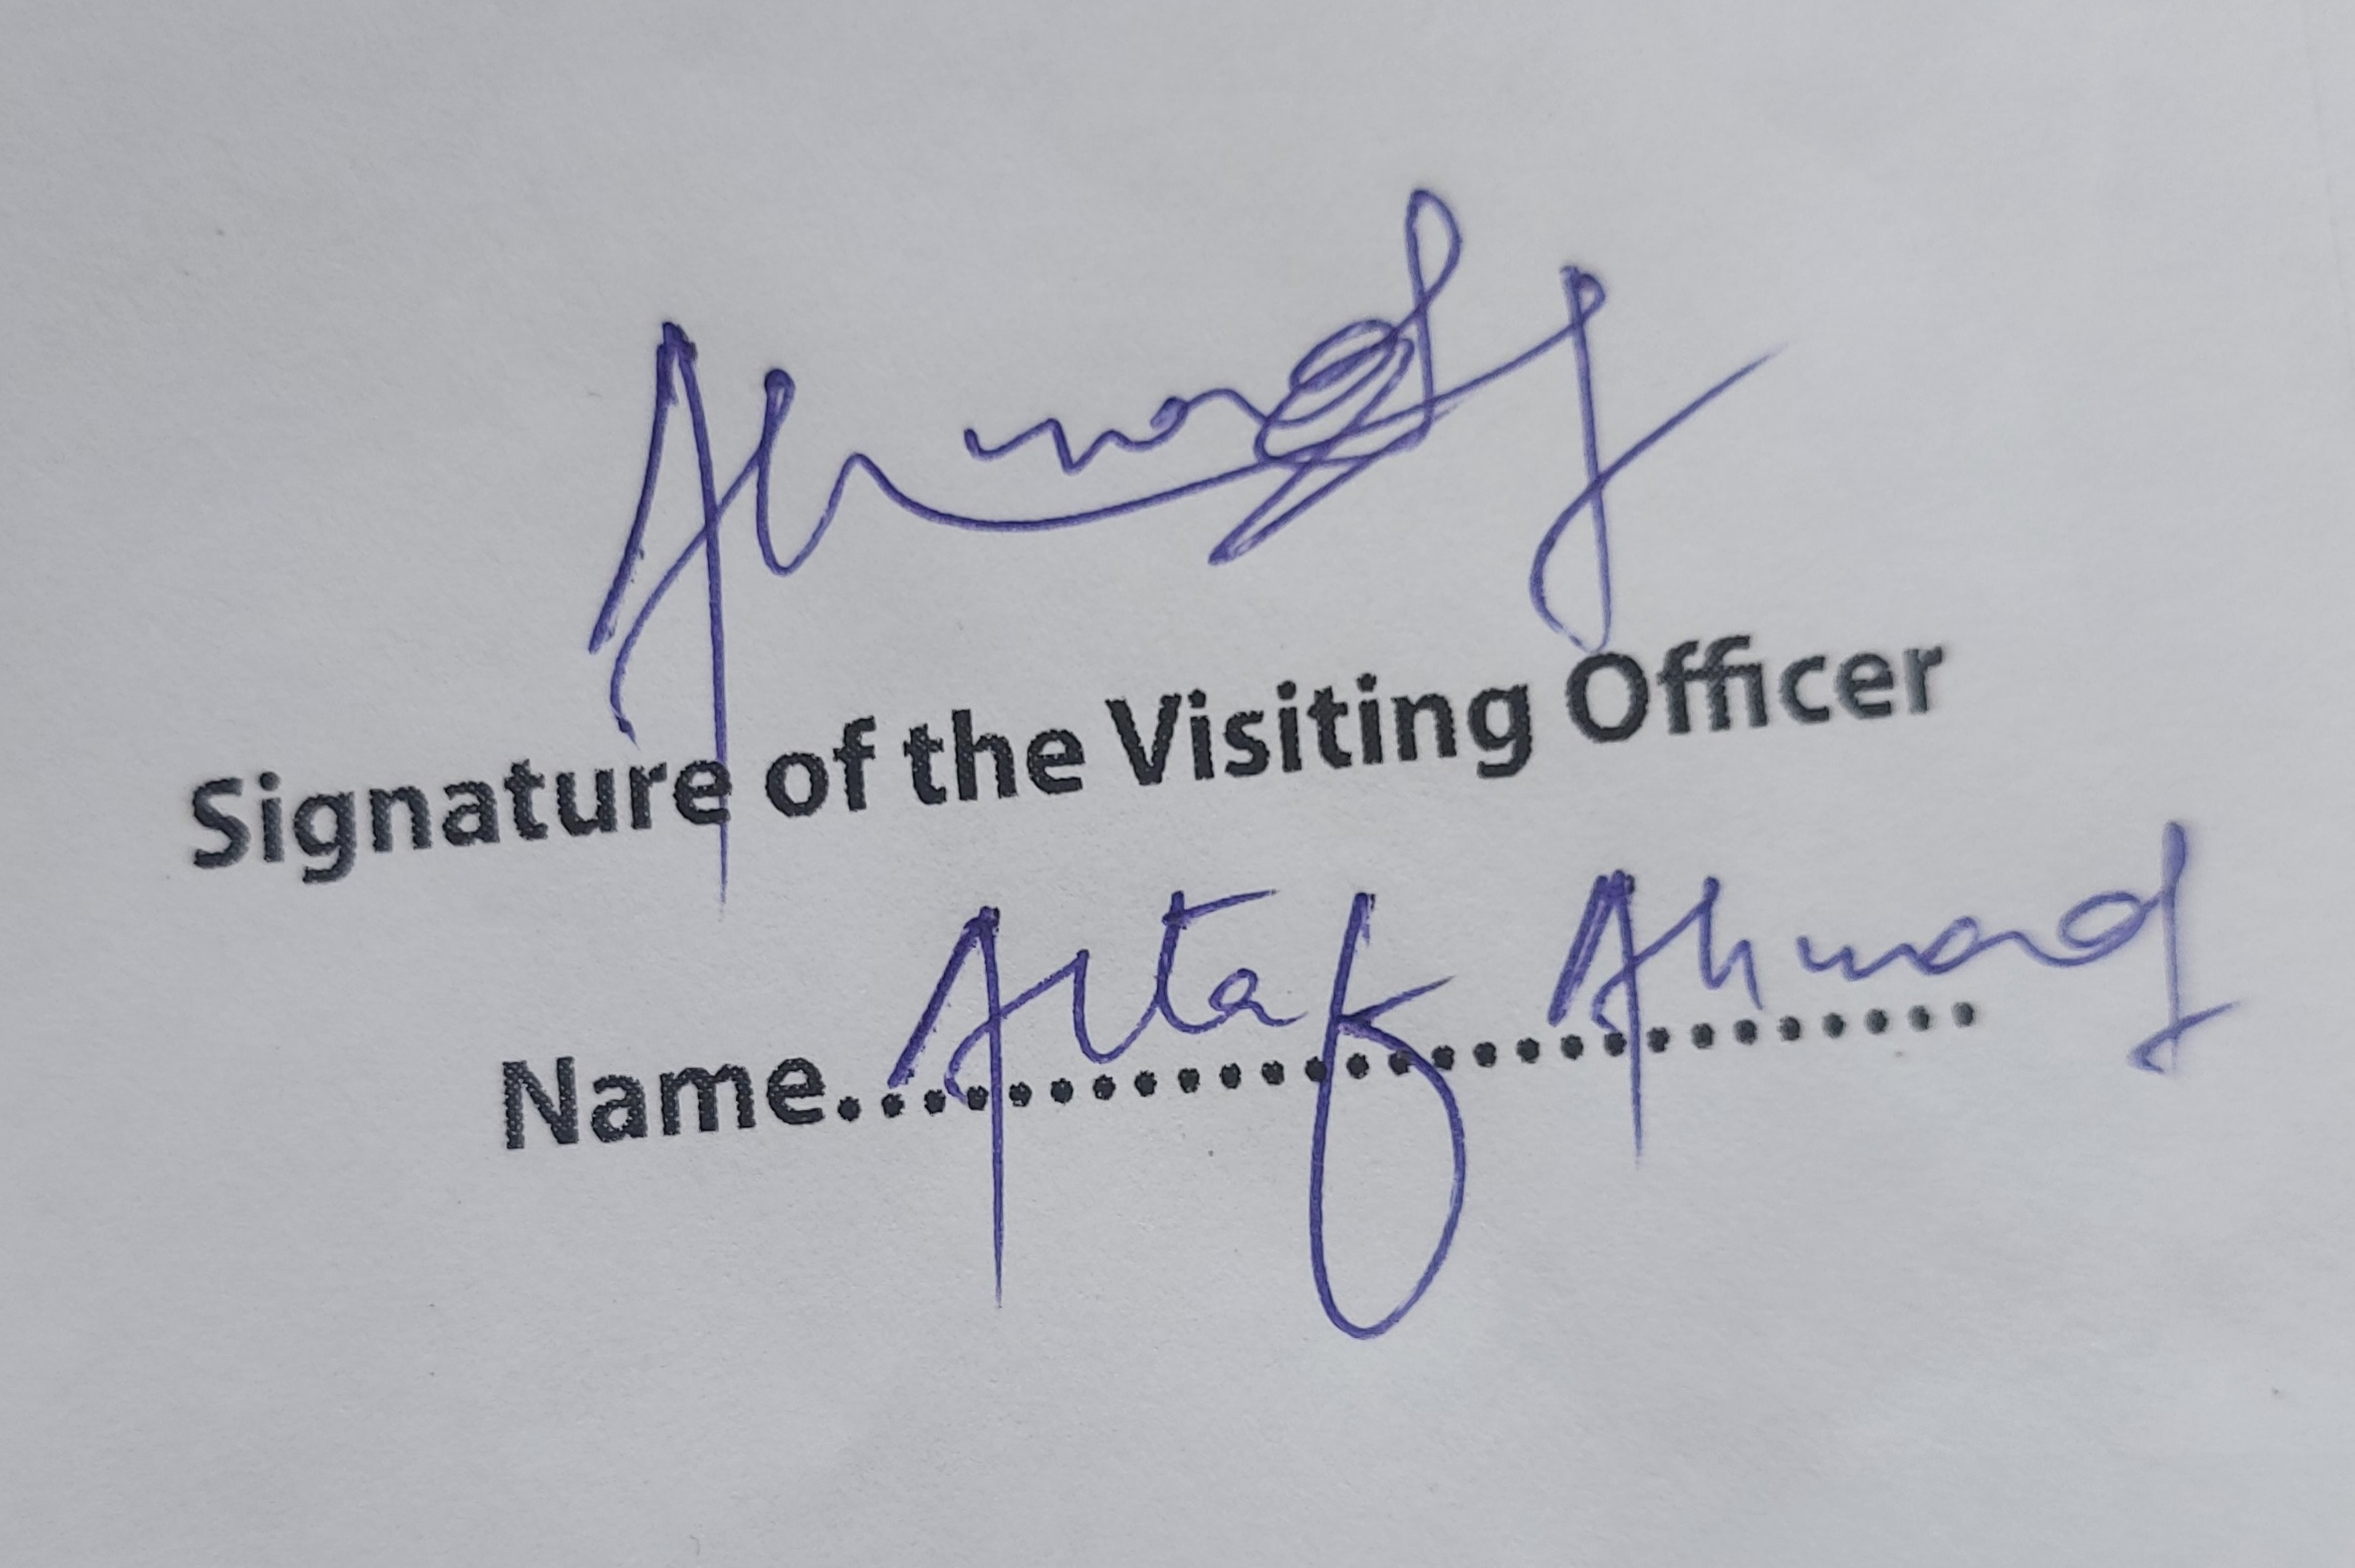 Ahmad
Signature of the Visiting Officer
Name.............................. Altaf Ahmad